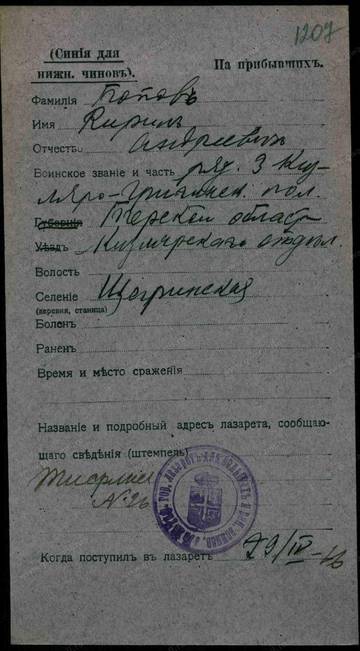 1207
(Синія для
нижн. чиновъ).
На прибывшихъ.
Фамилія Поповъ
Имя Кирилъ
Отчество Андреевичъ
Воинское званіе и часть ряд. 3 Киз-
ляро-Гребенск. пол.
Губернія Терской област
Уѣздъ Кизлярскаго отдѣл.
Волость
Селеніе
(деревня, станица)
Боленъ
Раненъ
Время и мѣсто сраженія
Названіе и подробный адресъ лазарета, сообщаю-
щаго свѣдѣнія (штемпель)
№ 26
Когда поступилъ въ лазаретъ 29/IV-16